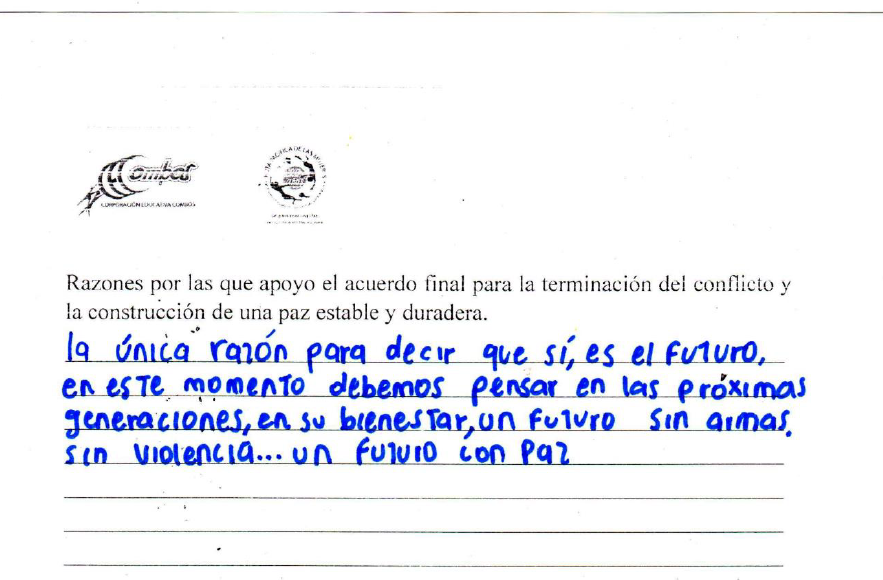 Combos
CORPORACIÓN EDUCATIVA COMBOS
Razones por las que apoyo el acuerdo final para la terminación del conflicto y
la construcción de una paz estable y duradera.
la única razón para decir que sí, es el futuro,
en este momento debemos pensar en las próximas
generaciones, en su bienestar, un futuro sin armas,
sin violencia... un futuro con paz